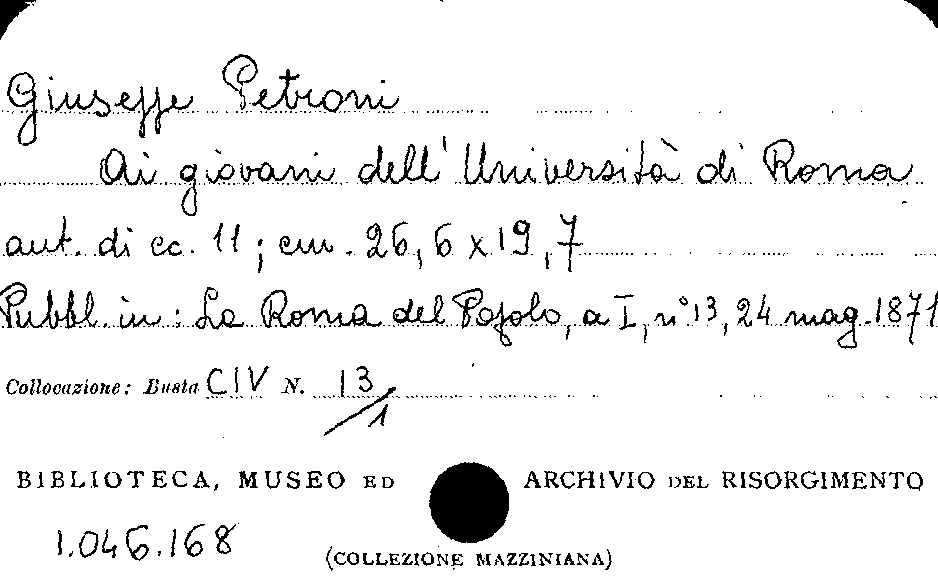 Giuseppe Petroni
Ai giovani dell'Università di Roma
aut. di cc. 11; cm. 26,6 x 19,7
Pubbl. in: La Roma del Popolo, a I, n° 13, 24 mag. 1871
Collocazione: Busta CIV N. 13/1
BIBLIOTECA, MUSEO ED ARCHIVIO DEL RISORGIMENTO
1.046.168
(COLLEZIONE MAZZINIANA)